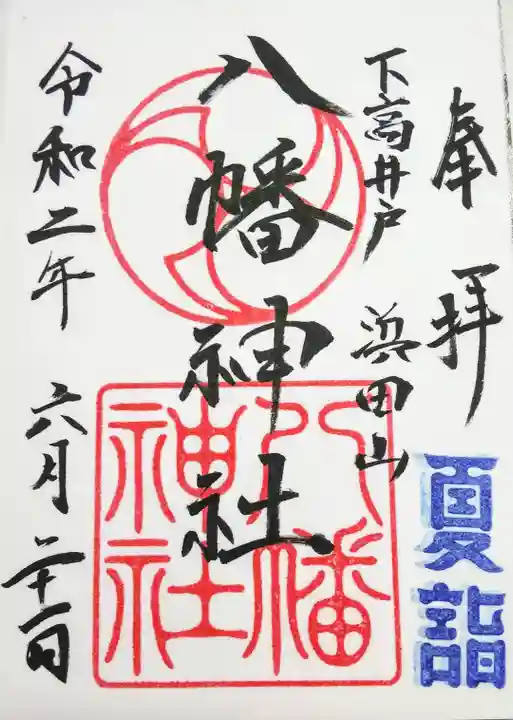 奉拝
夏詣
下高井戸
浜田山
八幡神社
八幡
神社
令和二年 六月 二十一日